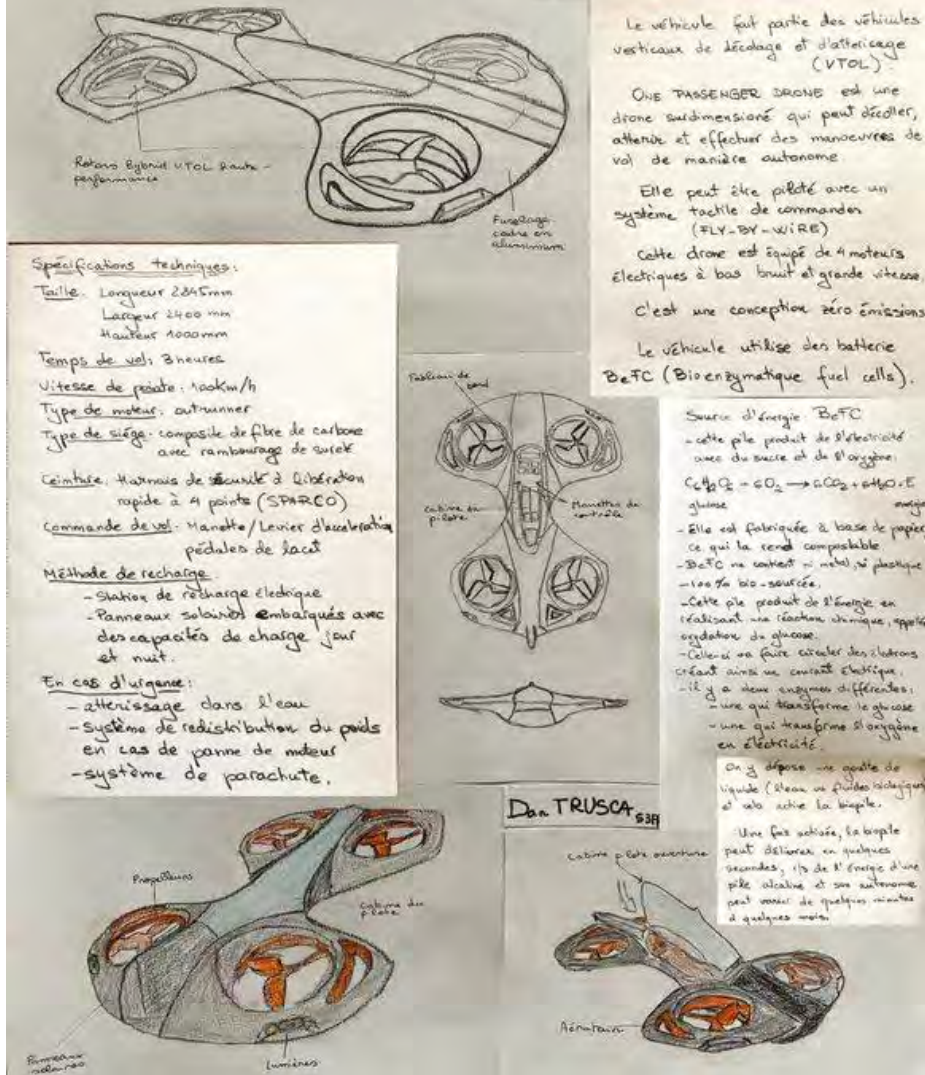 Le véhicule fait partie des véhicules
verticaux de décolage et d'atterisage
(VTOL).
ONE PASSENGER DRONE est une
drone surdimensioné qui peut décoller,
atterir et effectuer des manoeuvres de
vol de manière autonome
Elle peut être piloté avec un
système tactile de commandes
(FLY-BY-WIRE)
Cette drone est équipé de 4 moteurs
électriques à bas bruit et grande vitesse
C'est une conception zéro émissions
Le véhicule utilise des batterie
BeFC (Bioenzymatique fuel cells).
Rotors Hybrid VTOL haute-
performance
Fuselage
cadre en
aluminium
Spécifications techniques:
Taille. Longueur 2845mm
Largeur 2400 mm
Hauteur 1000mm
Temps de vol: 3 heures
Vitesse de pointe: 100km/h
Type de moteur: outrunner
Type de siége: composite de fibre de carbone
avec rambourage de sureté
Ceinture: Harnais de sécurité à libération
rapide à 4 points (SPARCO)
Commande de vol: Manette/Levier d'acceleration
pédales de lacet
Méthode de recharge
- Station de recharge électrique
- Panneaux solaires embarqués avec
des capacités de charge jour
et nuit.
En cas d'urgence:
- atterissage dans l'eau
- système de redistribution du poids
en cas de panne de moteur
- système de parachute.
Tableau de
bord
Cabine du
pilote
Manettes de
contrôle
Source d'énergie BeFC
- cette pile produit de l'électricité
avec du sucre et de l'oxygène:
glucose
- Elle est fabriquée à base de papier
ce qui la rend compostable
- BeFC ne contient ni metal, ni plastique
- 100% bio-sourcée.
- Cette pile produit de l'énergie en
réalisant une réaction chimique, appelé
oxydation du glucose.
- Celle-ci va faire circuler des électrons
créant ainsi un courant électrique.
- il y a deux enzymes différentes:
- une qui transforme le glucose
- une qui transforme l'oxygène
en éléctricité.
On y dépose une goutte de
liquide (l'eau ou fluides biologiques)
et cela active la biopile.
Une fois activée, la biopile
peut délivrer en quelques
secondes, 1/3 de l'énergie d'une
pile alcaline et son autonomie
peut varier de quelques minutes
à quelques mois.
Dan TRUSCA S3A
Propelleurs
Cabine du
pilote
Panneaux
solaires
Lumières
Cabine pilote ouverture